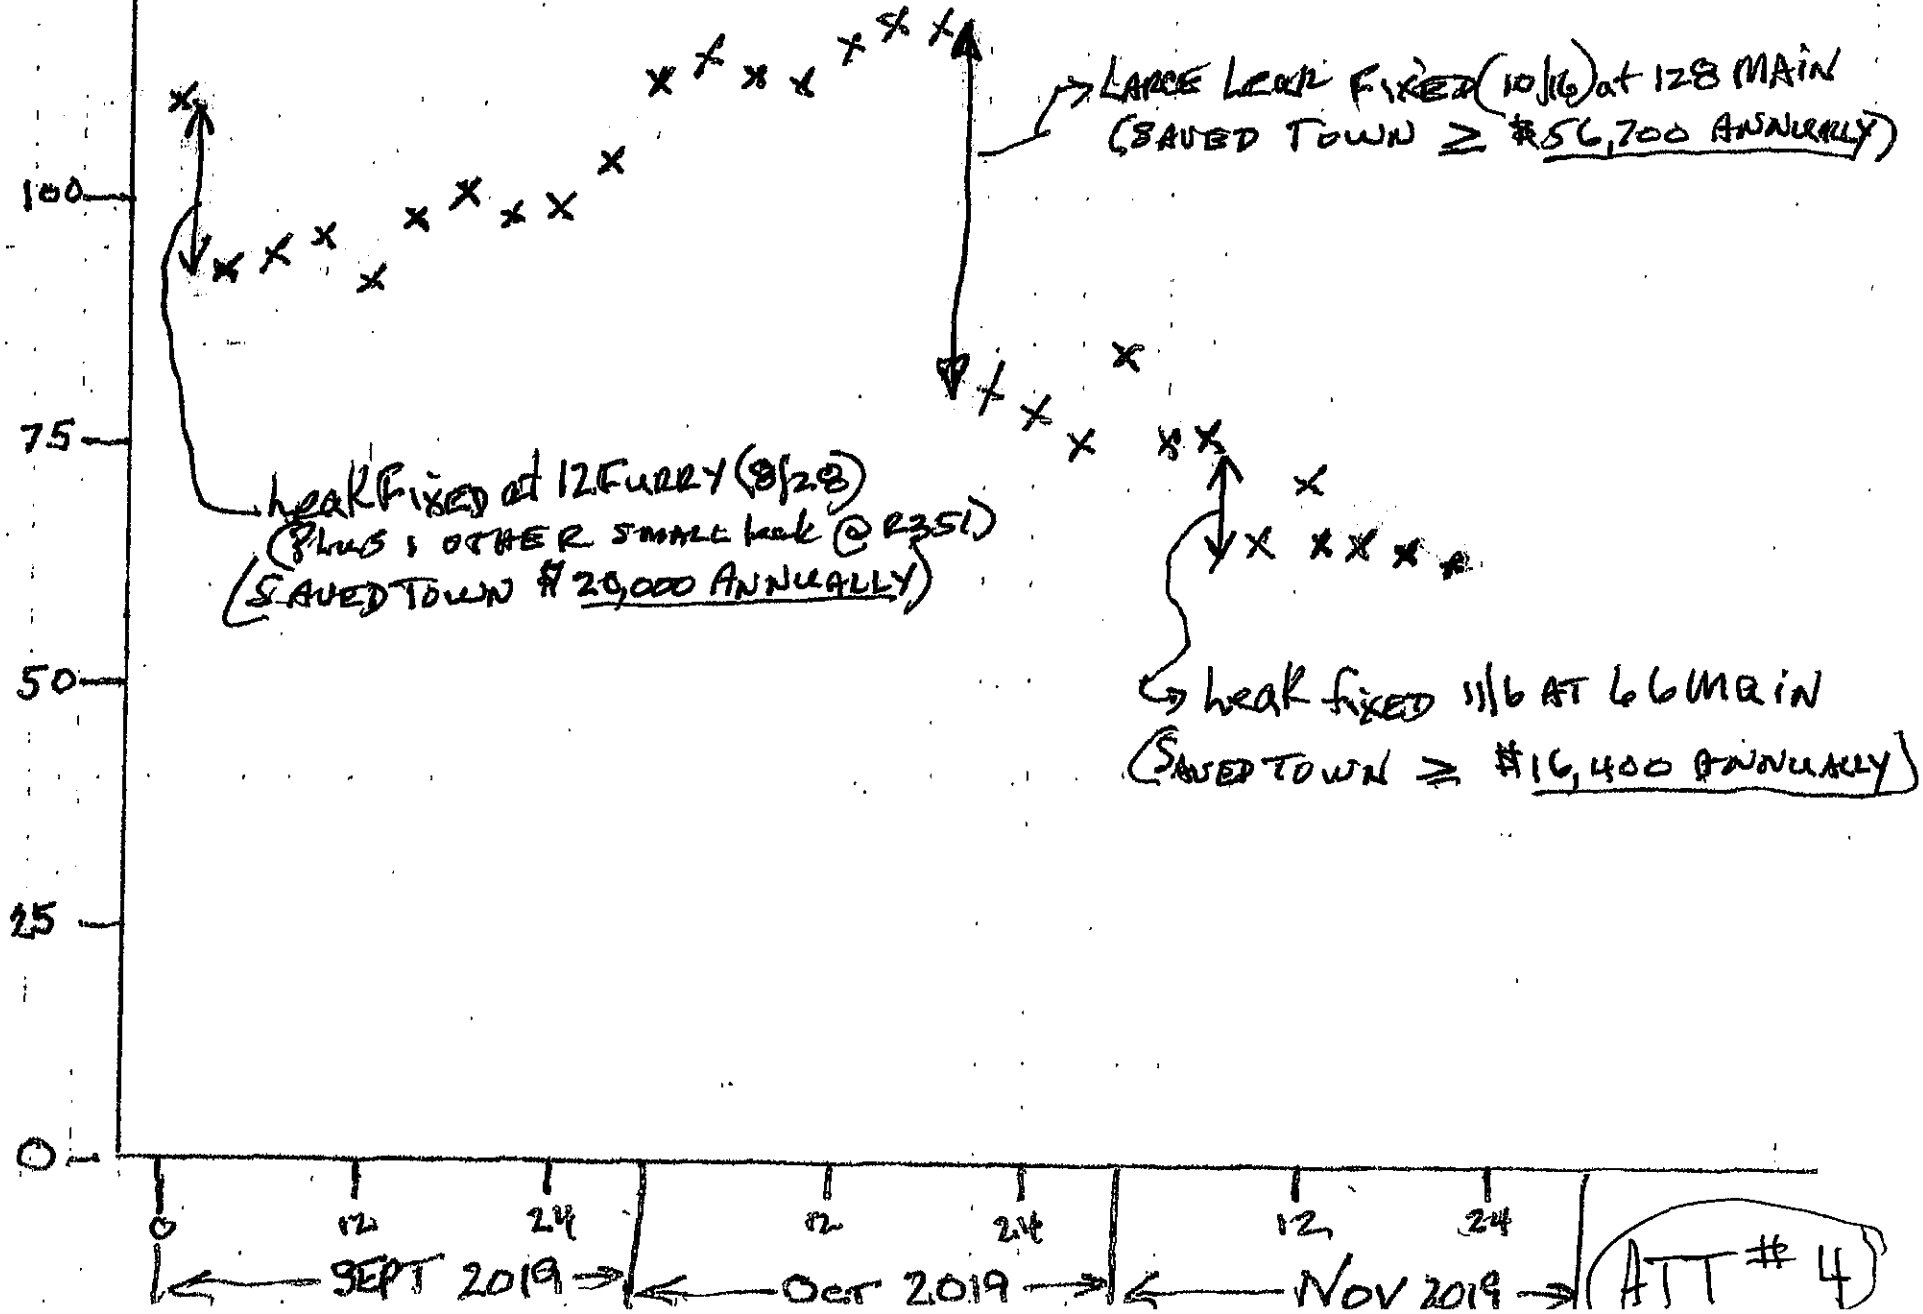 LARGE Leak FIXED (10/16) at 128 MAIN
(SAVED TOWN ≥ $56,700 ANNUALLY)
100
75
Leak FIXED at 12 FURRY (8/28)
(PLUS 1 OTHER SMALL leak @ R351)
(SAVED TOWN $20,000 ANNUALLY)
50
Leak fixed 11/6 AT 66 MAIN
(SAVED TOWN ≥ $16,400 ANNUALLY)
25
0
0 12 24 12 24 12 24
SEPT 2019 OCT 2019 NOV 2019 ATT # 4